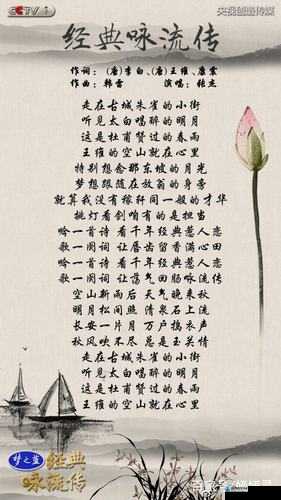 CCTV 1
央视创造传媒
经典咏流传
作词:(唐)李白、(唐)王维、康震
作曲:韩雷 演唱:张杰
走在古城朱雀的小街
听见太白唱醉的明月
这是杜甫赞过的春雨
王维的空山就在心里
特别想念那东坡的月光
梦想跟随在放翁的身旁
就算我没有稼轩同一般的才华
挑灯看剑咱有的是担当
吟一首诗 看千年经典惹人恋
歌一阕词 让唇齿留香满心田
吟一首诗 看千年经典惹人恋
歌一阕词 让荡气回肠咏流传
空山新雨后 天气晚来秋
明月松间照 清泉石上流
长安一片月 万户捣衣声
秋风吹不尽 总是玉关情
走在古城朱雀的小街
听见太白唱醉的明月
这是杜甫赞过的春雨
王维的空山就在心里
梦之蓝
经典
咏流传